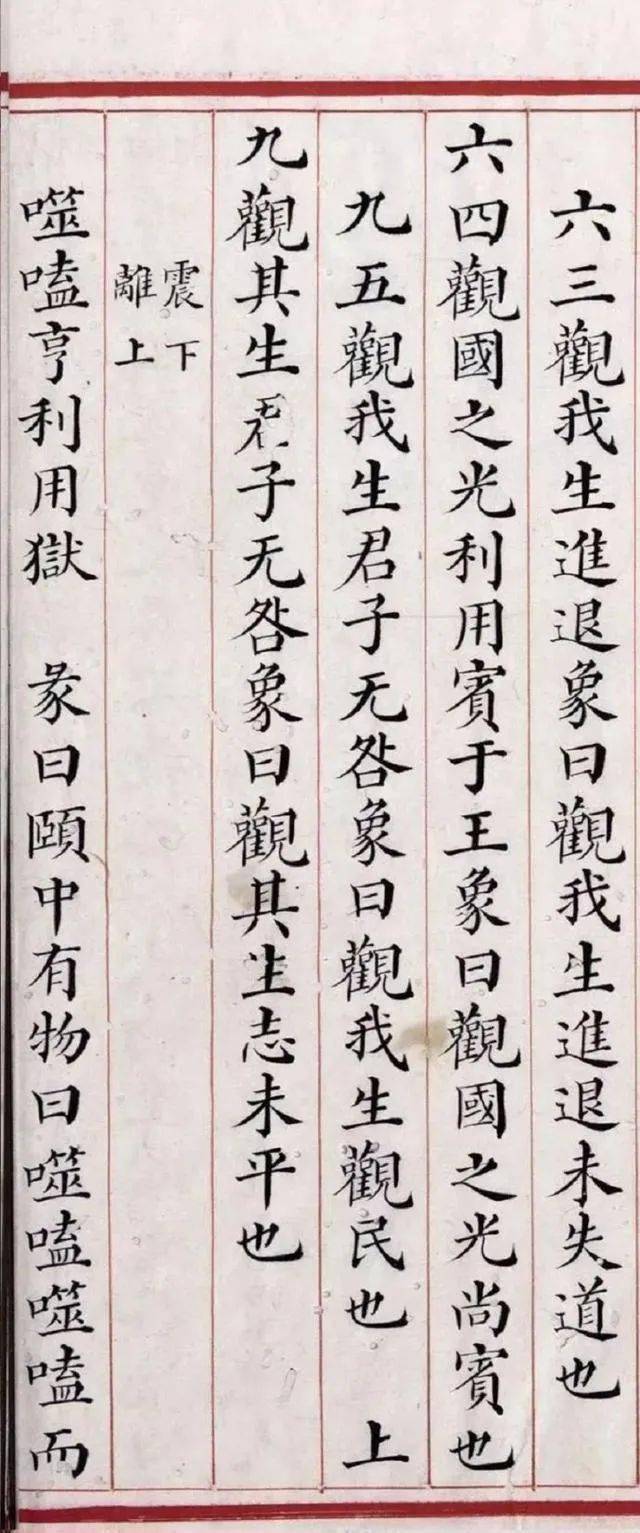 六三觀我生進退象曰觀我生進退未失道也
六四觀國之光利用賓于王象曰觀國之光尚賓也
九五觀我生君子无咎象曰觀我生觀民也 上
九觀其生君子无咎象曰觀其生志未平也
震下
離上
噬嗑亨利用獄 彖曰頤中有物曰噬嗑噬嗑而